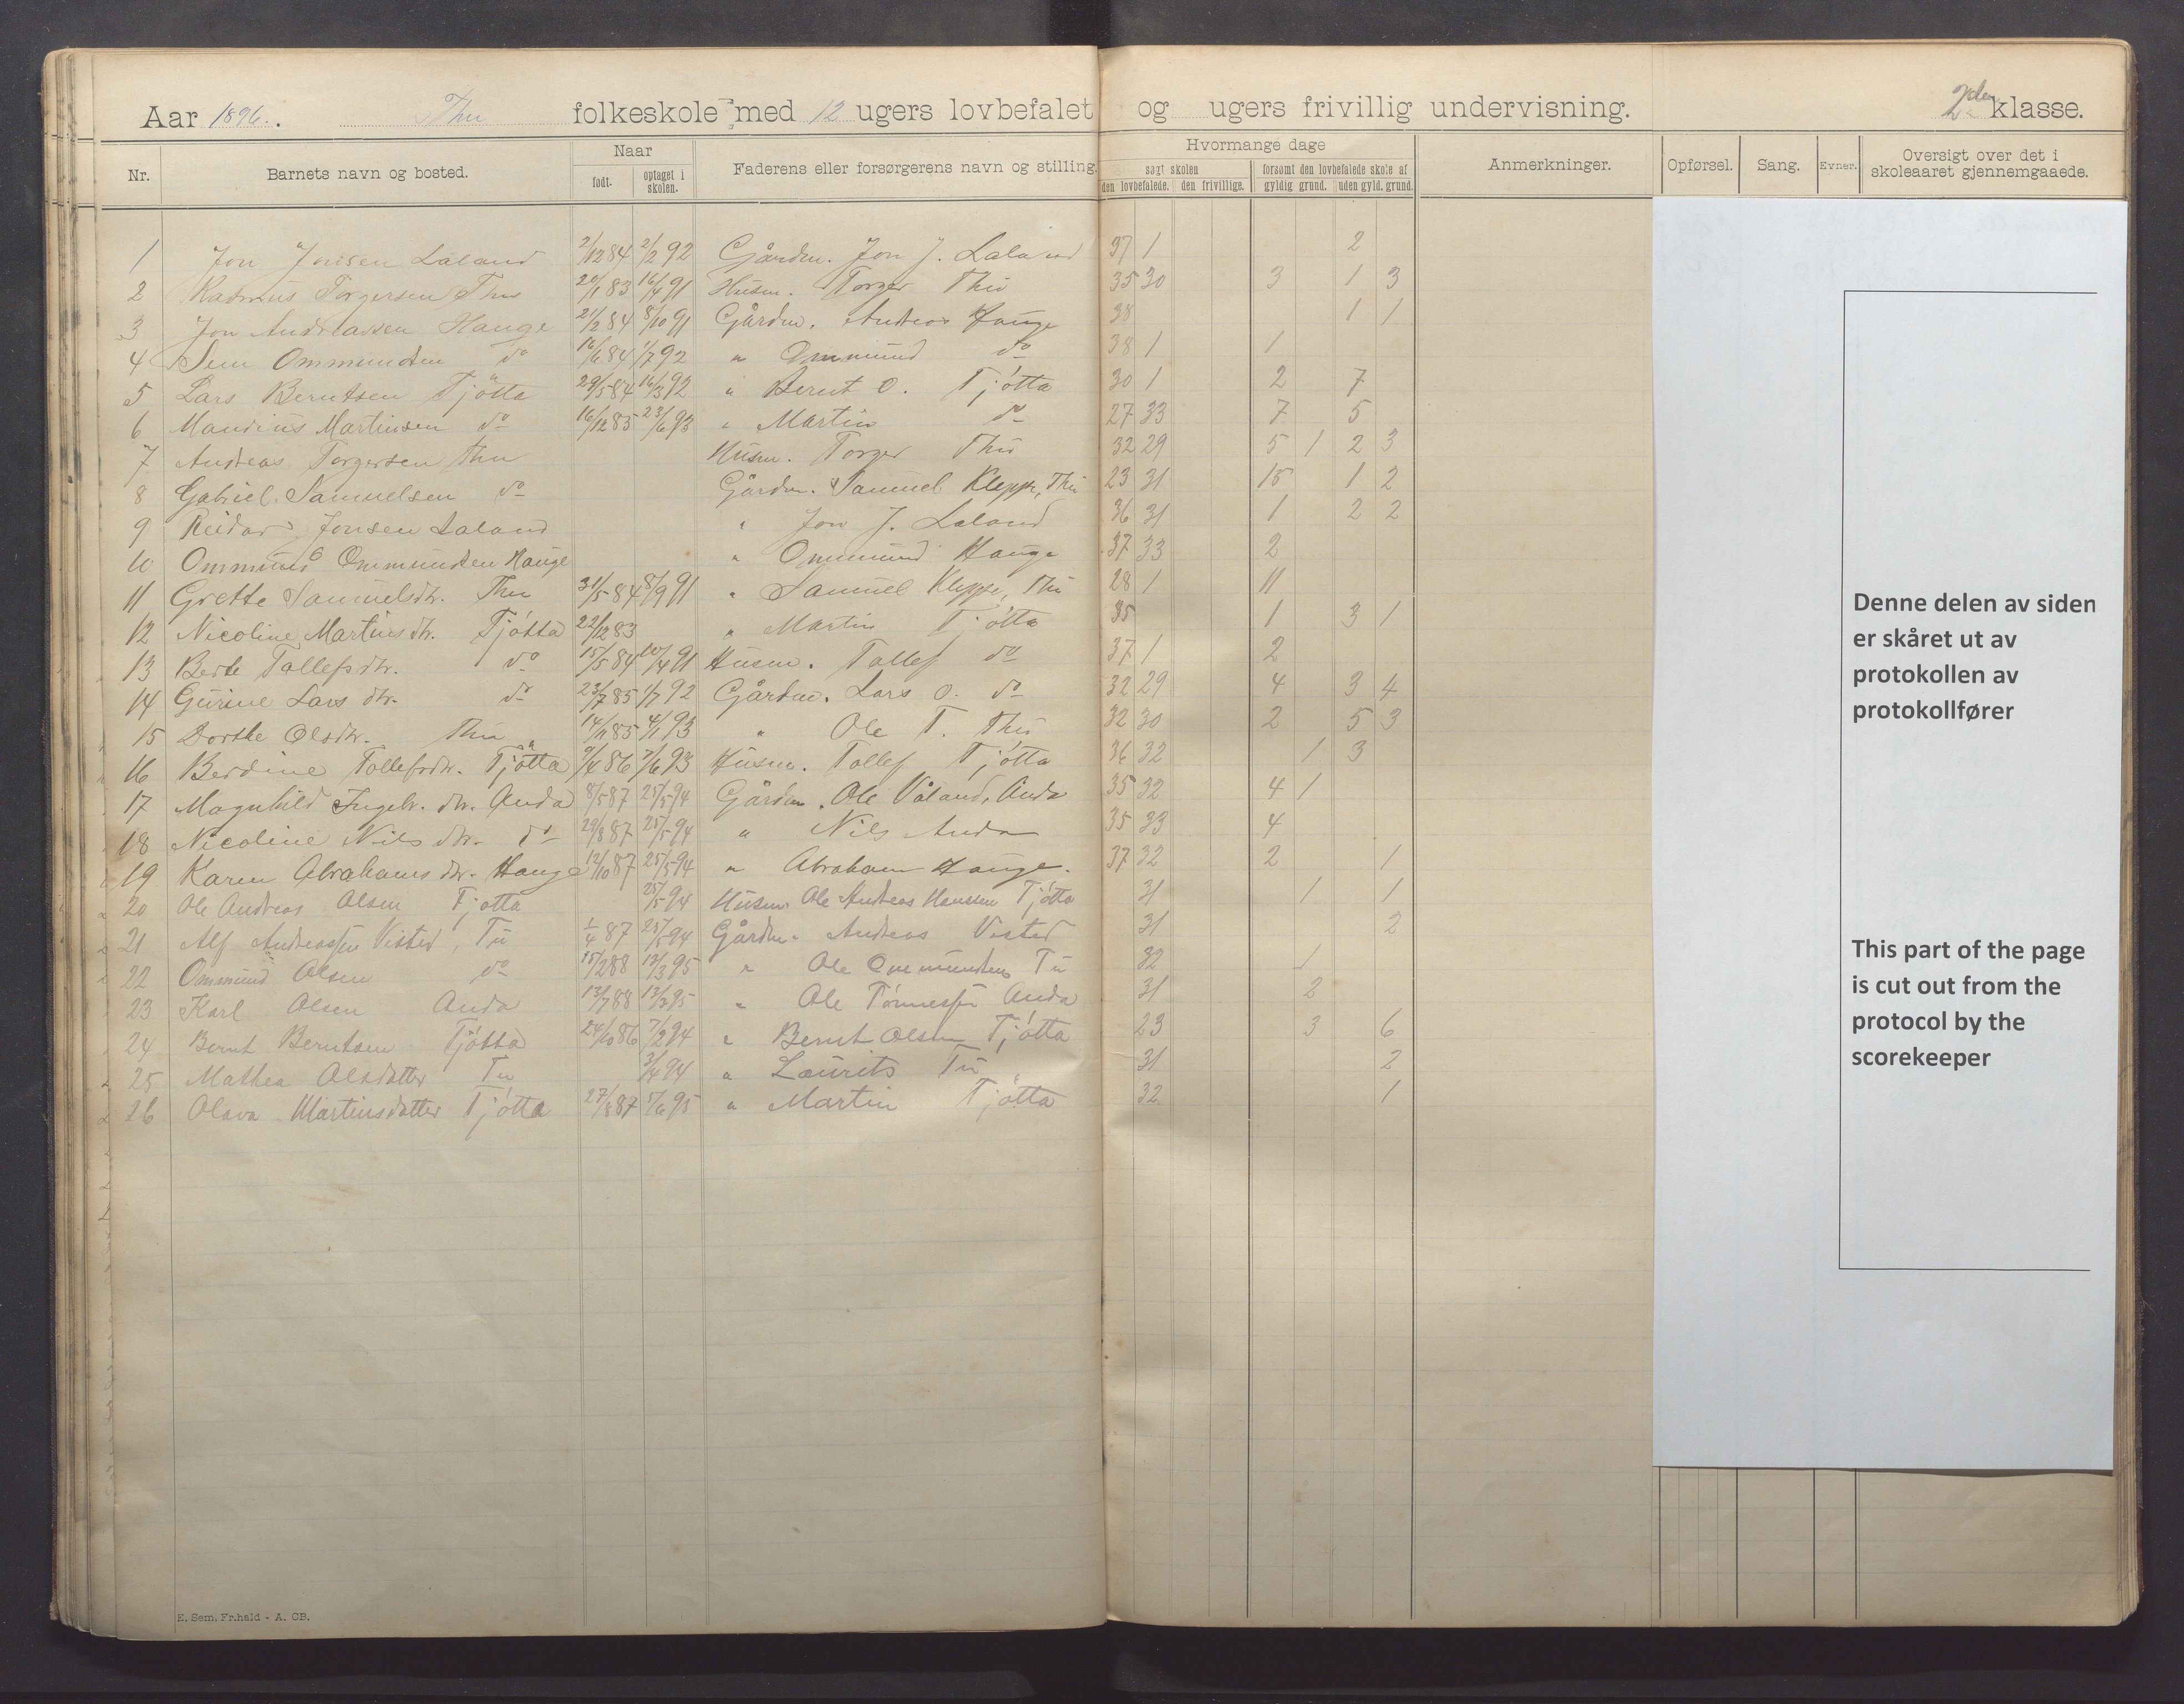 Aar 1896. Thu folkeskole med 12 ugers lovbefalet og ugers frivillig undervisning. 2den klasse.
Nr. Barnets navn og bosted. Naar født. optaget i skolen. Faderens eller forsørgerens navn og stilling. Hvormange dage søgt skolen den lovbefalede. den frivillige. forsømt den lovbefalede skole af gyldig grund. uden gyld. grund. Anmerkninger. Opførsel. Sang. Evner. Oversigt over det i skoleaaret gjennemgaaede.
1 Jon Jonsen Laland 2/12 84 2/2 92 Gårdm. Jon J. Laland 37 1 2
2 Rasmus Torgersen Thu 20/1 83 16/4 91 Husm. Torger Thu 35 30 3 1 3
3 Jon Andreassen Hauge 21/2 84 8/10 91 Gårdm. Andreas Hauge 38 1 1
4 Sem Ommundsen do 16/6 84 1/7 92 " Ommund do 38 1 1
5 Lars Berntsen Tjötta 29/5 84 16/3 92 " Bernt O. Tjötta 30 1 2 7
6 Mandius Martinsen do 16/12 85 23/6 93 " Martin do 27 33 7 5
7 Andreas Torgersen Thu Husm. Torger Thu 32 29 5 1 2 3
8 Gabriel Samuelsen do Gårdm. Samuel Kleppe, Thu 23 31 15 1 2
9 Reidar Jonsen Laland " Jon J. Laland 36 31 1 2 2
10 Ommund Ommundsen Hauge " Ommund Hauge 37 33 2
11 Grette Samuelsdtr. Thu 31/5 84 8/9 91 " Samuel Kleppe, Thu 28 1 11
12 Nicoline Martinsdtr. Tjötta 22/12 83 " Martin Tjötta 35 1 3 1
13 Berte Tollefsdtr. do 15/5 84 10/4 91 Husm. Tollef do 37 1 2
14 Gurine Lars dtr. do 23/7 85 1/7 92 Gårdm. Lars O. do 32 29 4 3 4
15 Dorthe Olsdtr. Thu 14/11 85 4/1 93 " Ole T. Thu 32 30 2 5 3
16 Berdine Tollefsdtr. Tjøtta 9/4 86 7/6 93 Husm. Tollef Tjötta 36 32 1 3
17 Magnhild Ingebr. dtr. Anda 8/5 87 25/5 94 Gårdm. Ole Våland, Anda 35 32 4 1
18 Nicoline Nils dtr. do 29/8 87 25/5 94 " Nils Anda 35 33 4
19 Karen Abrahams dtr. Hauge 12/10 87 25/5 94 " Abraham Hauge. 37 32 2 1
20 Ole Andreas Olsen Tjotta 25/5 94 Husm. Ole Andreas Hanssen Tjötta 31 1 1
21 Alf Andreassen Visted, Tu 1/4 87 25/5 94 Gårdm. Andreas Visted 31 2
22 Ommund Olsen do 15/2 88 13/3 95 " Ole Ommundsen Tu 32 1
23 Karl Olsen Anda 13/7 88 13/3 95 " Ole Tønnessen Anda 31 2
24 Bernt Berntsen Tjötta 24/10 86 7/2 94 " Bernt Olsen Tjötta 23 3 6
25 Mathea Olsdatter Tu 3/4 94 " Laurits Tu 31 2
26 Olava Martinsdatter Tjötta 27/8 87 1/6 95 " Martin Tjötta 32 1
Denne delen av siden
er skåret ut av
protokollen av
protokollfører
This part of the page
is cut out from the
protocol by the
scorekeeper
E. Sem. Fr.hald - A. CB.